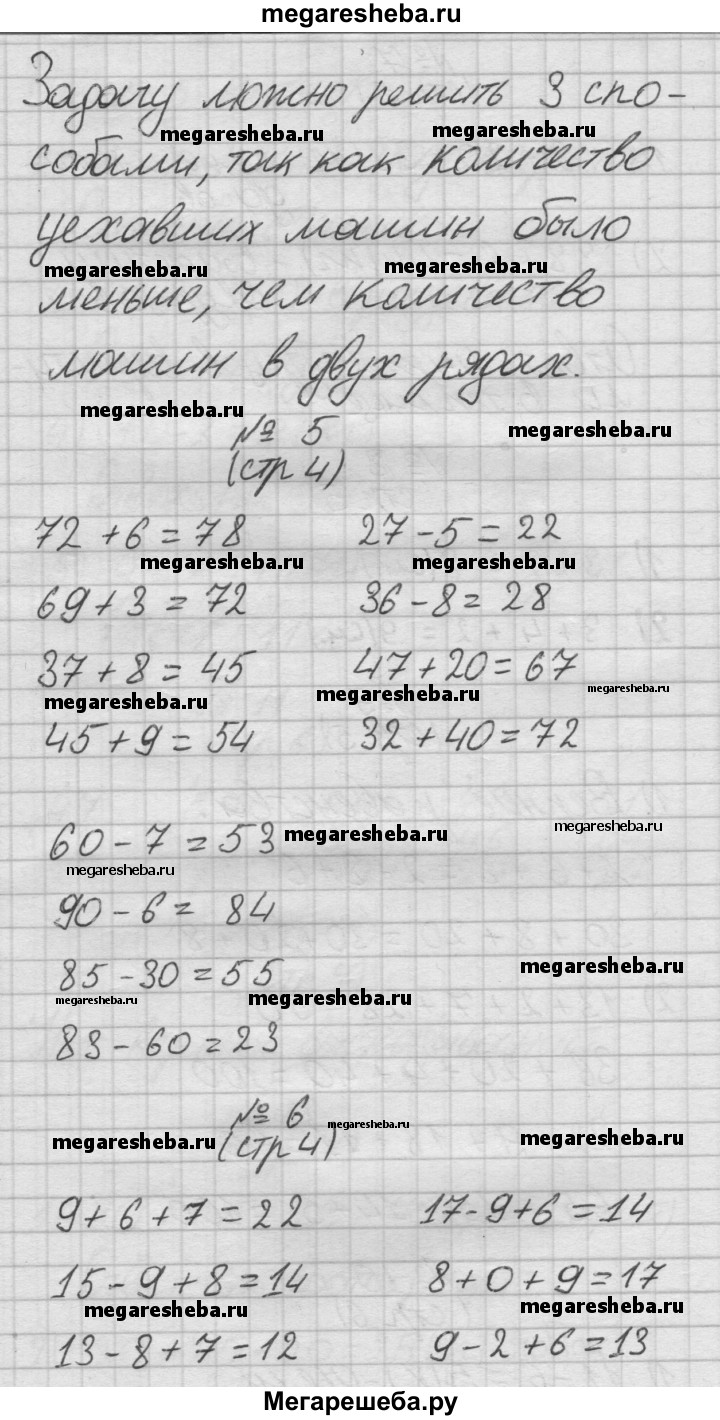 megaresheba.ru
Задачу можно решить 3 спо-
megaresheba.ru megaresheba.ru
собами, так как количество
уехавших машин было
megaresheba.ru megaresheba.ru
меньше, чем количество
машин в двух рядах.
megaresheba.ru megaresheba.ru
№ 5
(стр 4)
72 + 6 = 78 27 - 5 = 22
megaresheba.ru megaresheba.ru
69 + 3 = 72 36 - 8 = 28
37 + 8 = 45 47 + 20 = 67
megaresheba.ru megaresheba.ru megaresheba.ru
45 + 9 = 54 32 + 40 = 72
60 - 7 = 53 megaresheba.ru megaresheba.ru
megaresheba.ru
90 - 6 = 84
85 - 30 = 55 megaresheba.ru
megaresheba.ru megaresheba.ru
83 - 60 = 23
№ 6
megaresheba.ru (стр 4) megaresheba.ru megaresheba.ru
9 + 6 + 7 = 22 17 - 9 + 6 = 14
15 - 9 + 8 = 14 8 + 0 + 9 = 17
megaresheba.ru megaresheba.ru
13 - 8 + 7 = 12 9 - 2 + 6 = 13
Мегарешеба.ру